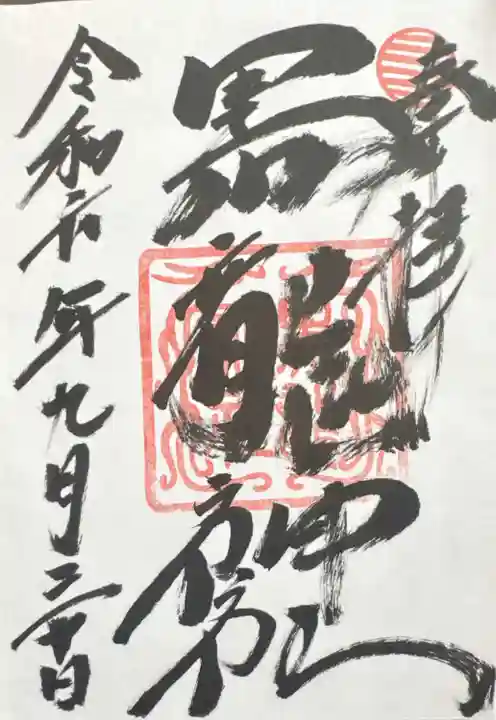 奉拝
黒龍神社
令和六年九月二十日